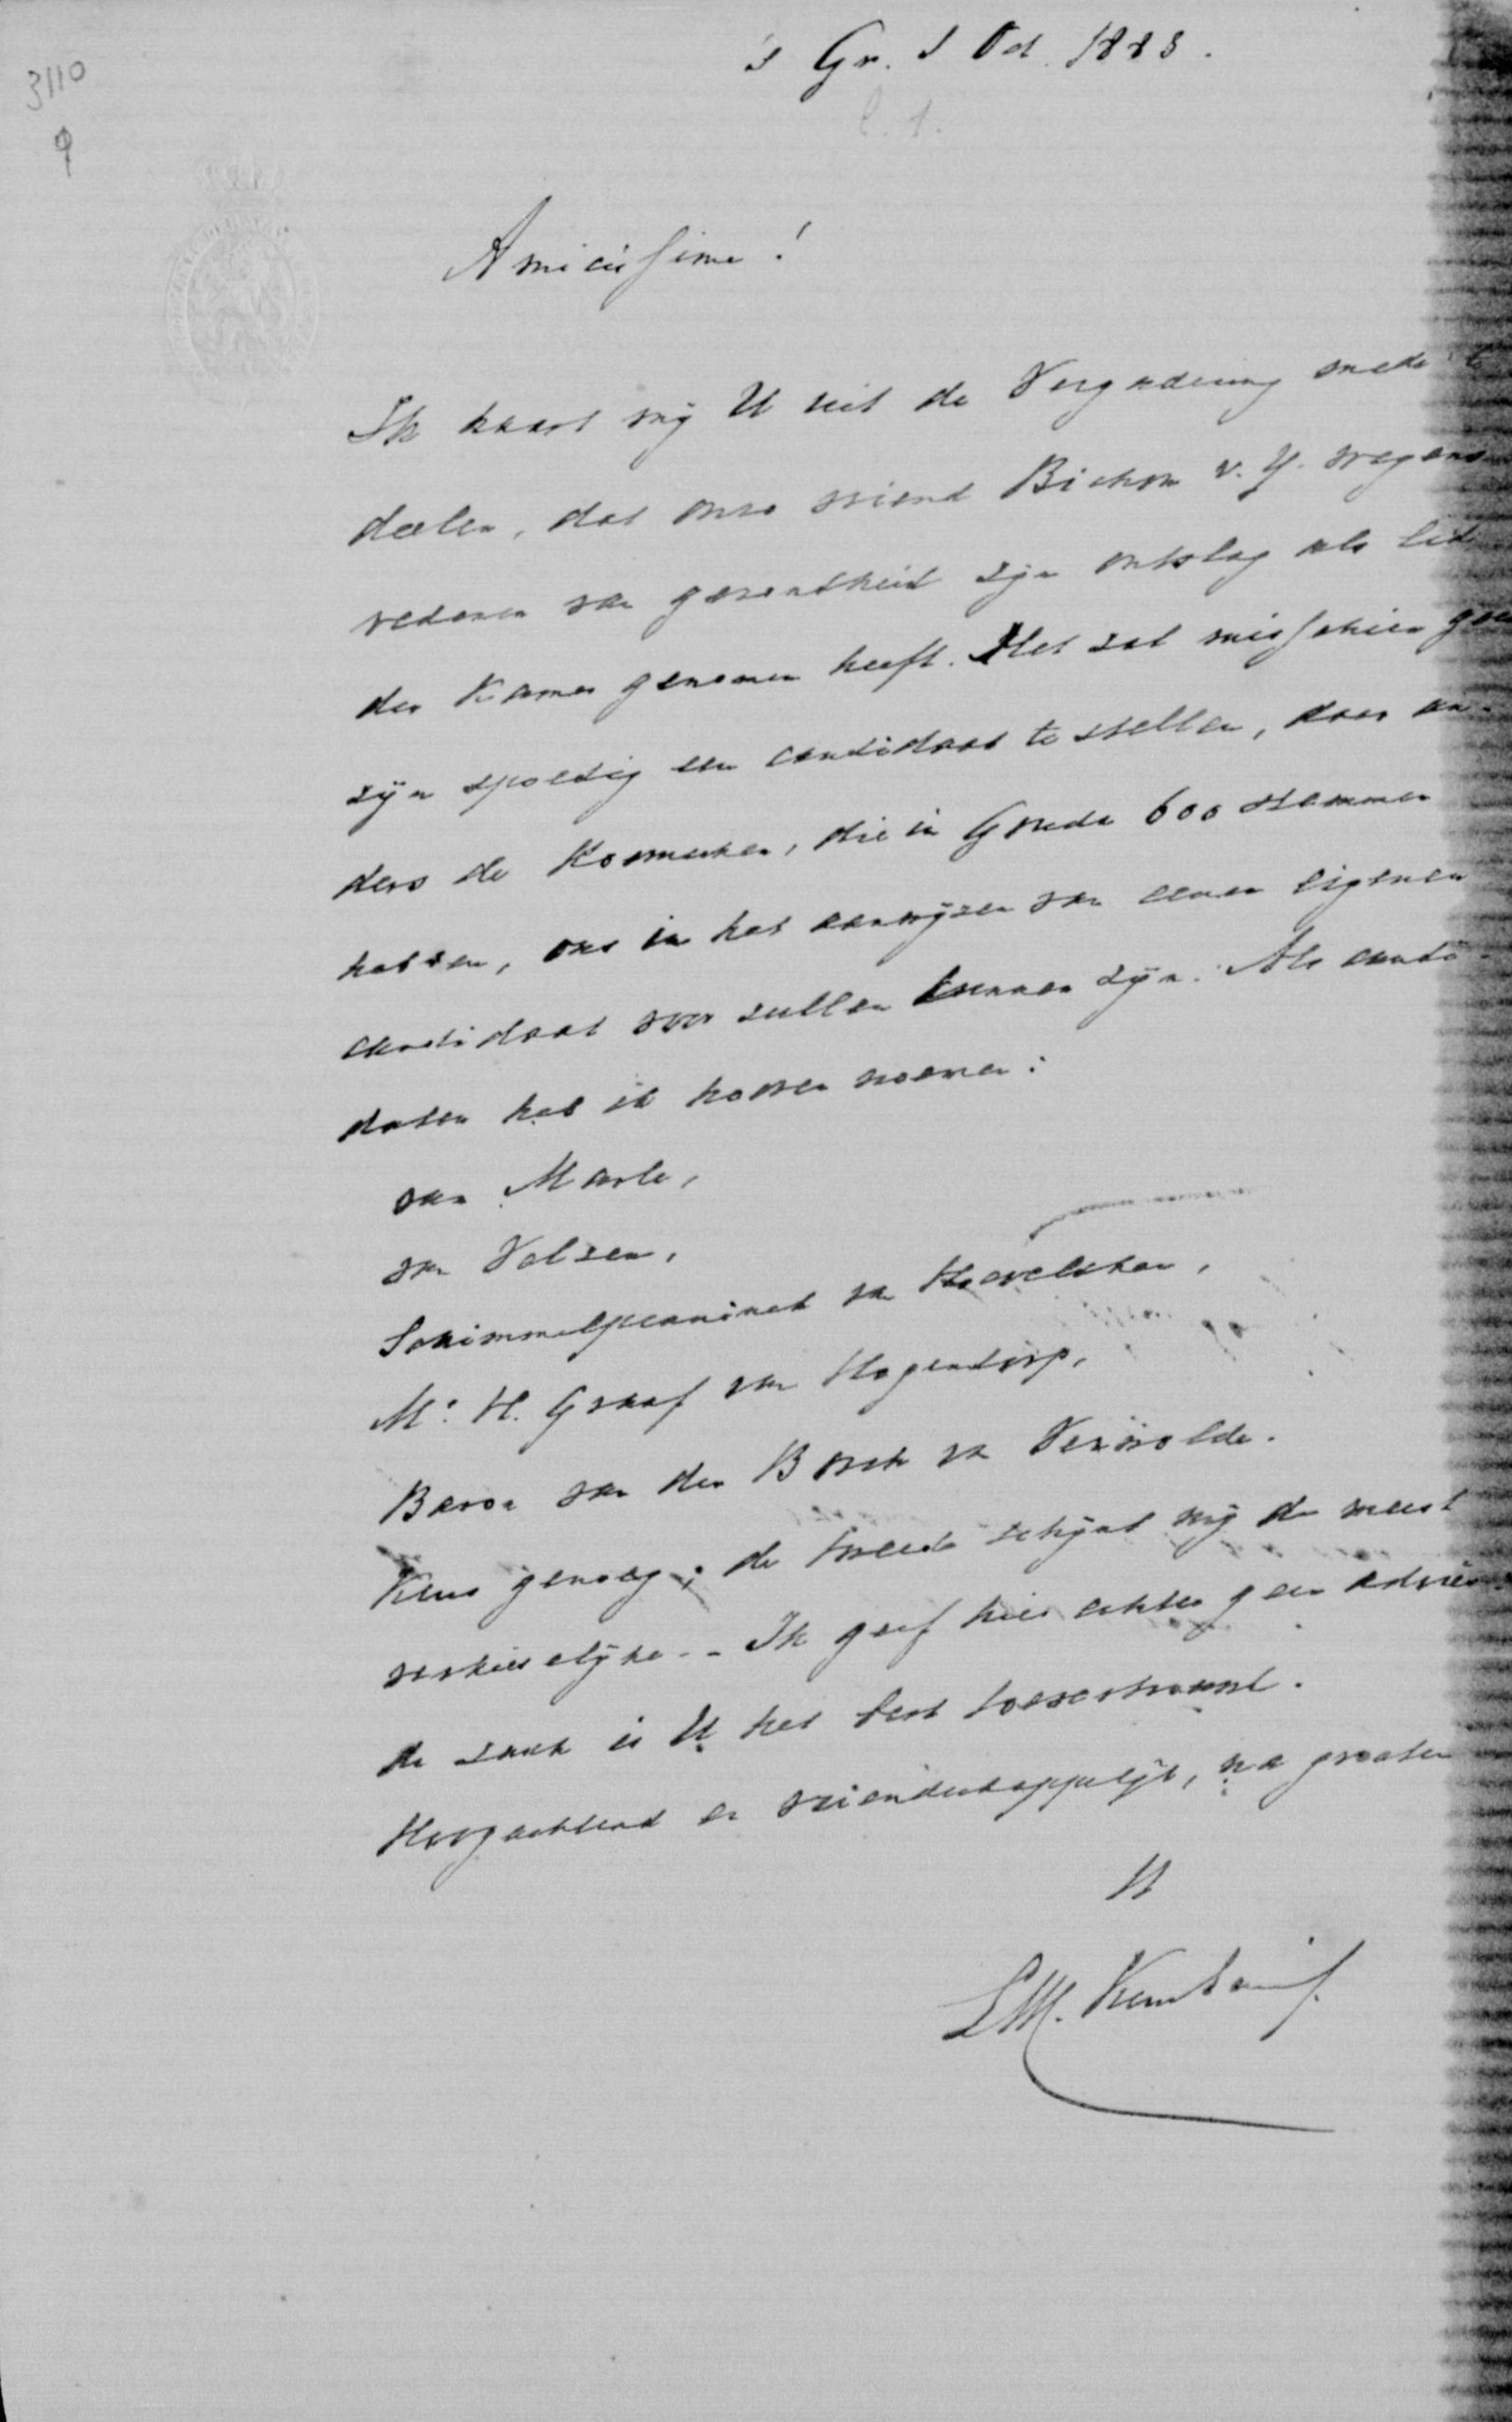 3110
's Gr. 1 Oct. 1883.
Amicissime!
Ik haast mij U uit de Vergadering mede te
deelen, dat onze vriend Bichon v. IJ. wegens
redenen van gezondheid zijn ontslag als lid
der Kamer genomen heeft. Het zal misschien goed
zijn spoedig een candidaat te stellen, daar an-
ders de Roomschen, die in Gouda 600 stemmen
hebben, ons in het aanwijzen van eenen eigenen
candidaat voor zullen kunnen zijn. Als candi-
daten heb ik hooren noemen:
van Marle,
van Velzen,
Schimmelpenninck van Hoevelaken,
Mr. H. Graaf van Hogendorp,
Baron van der Borch van Verwolde.
Keus genoeg; de tweede schijnt mij de meest
verkieselijke. - Ik geef hier echter geen advies.
de zaak is U het best toevertrouwd.
Hoogachtend en vriendschappelijk, na groeten
U
L.M. Keuchenius.